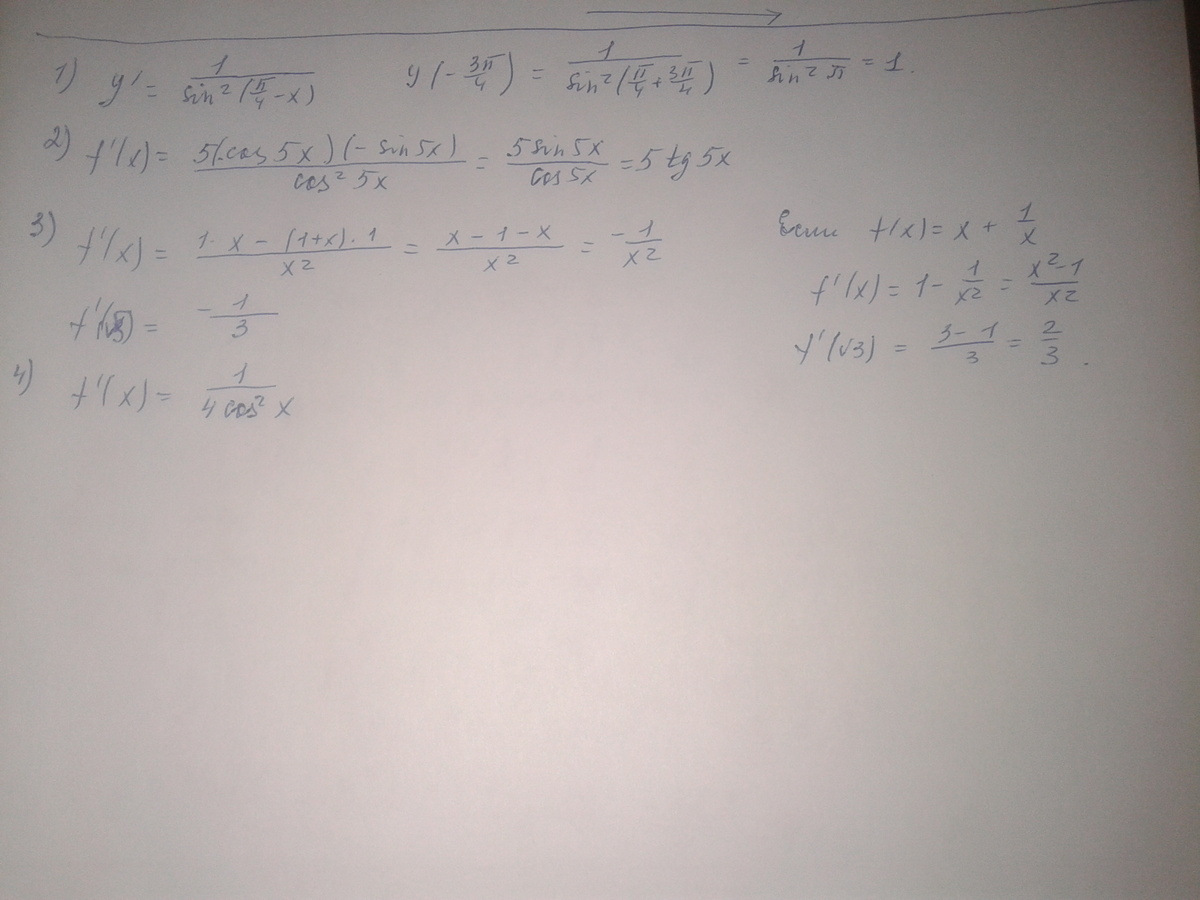 1) y' = 1/(sin²(π/4 - x))   y(-3π/4) = 1/(sin²(π/4 + 3π/4)) = 1/(sin² π) = 1.
2) f'(x) = (5(cos 5x)(- sin 5x))/(cos² 5x) = (5 sin 5x)/(cos 5x) = 5 tg 5x
3) f'(x) = (1· x - (1+x)·1)/(x²) = (x - 1 - x)/(x²) = -1/(x²)
f'(√3) = -1/3
Если f(x) = x + 1/x
f'(x) = 1 - 1/(x²) = (x²-1)/(x²)
f'(√3) = (3-1)/3 = 2/3.
4) f'(x) = 1/(4 cos² x)